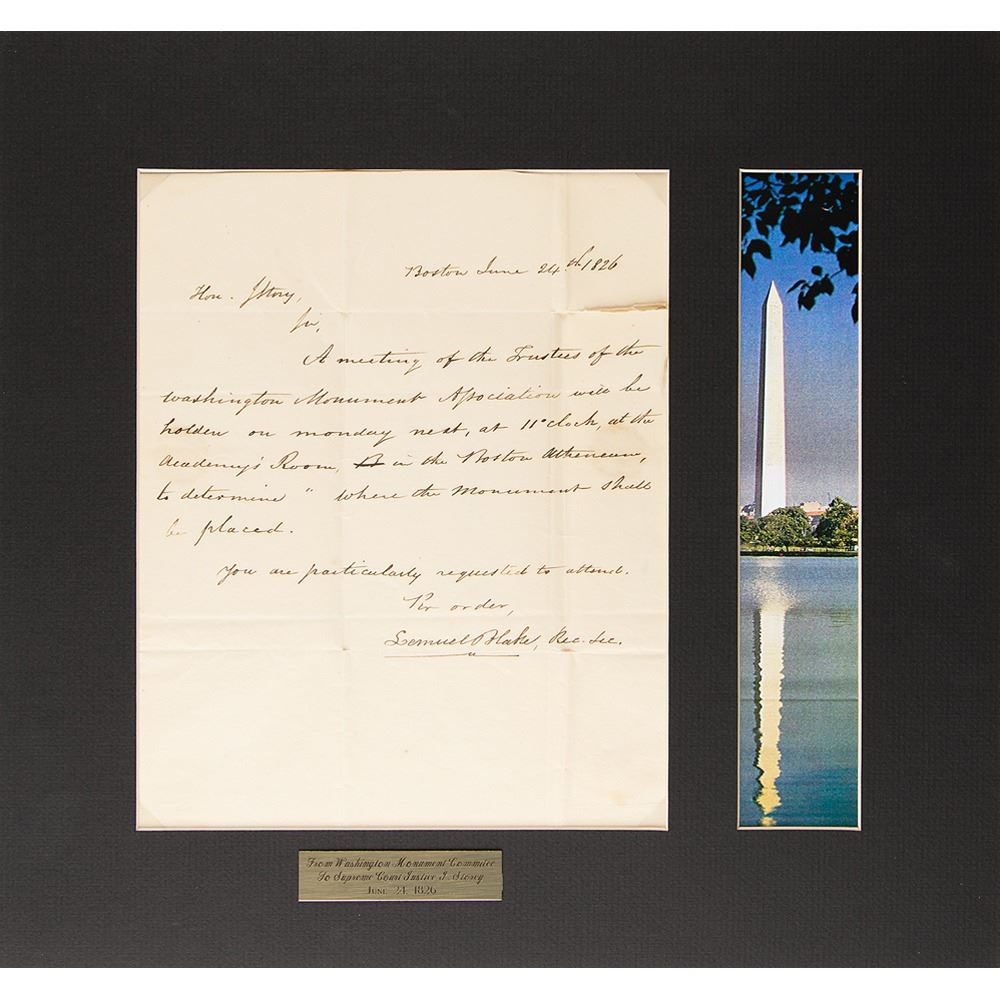 Boston June 24th 1826
Hon. J Story,
Sir,
A meeting of the Trustees of the
Washington Monument Association will be
holden on monday next, at 11 o'clock, at the
Academy's Room, in the Boston Atheneum,
to determine " where the Monument shall
be placed.
You are particularly requested to attend.
Per order,
Lemuel Blake, Rec. Sec.
From Washington Monument Commitee
To Supreme Court Justice J. Storey
June 24, 1826